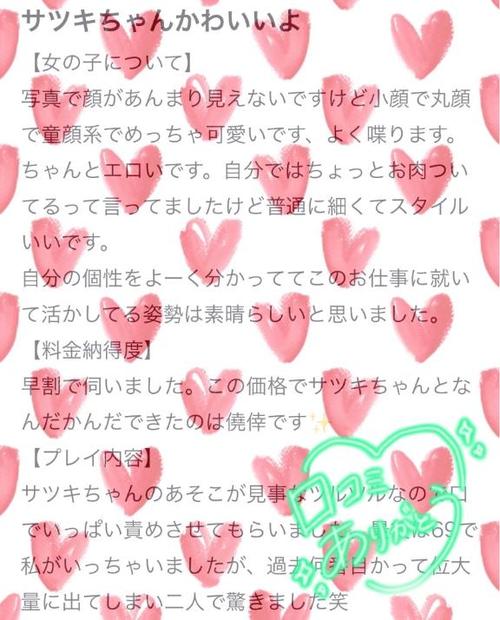 サツキちゃんかわいいよ
【女の子について】
写真で顔があんまり見えないですけど小顔で丸顔
で童顔系でめっちゃ可愛いです、よく喋ります。
ちゃんとエロいです。自分ではちょっとお肉つい
てるって言ってましたけど普通に細くてスタイル
いいです。
自分の個性をよーく分かっててこのお仕事に就い
て活かしてる姿勢は素晴らしいと思いました。
【料金納得度】
早割で伺いました。この価格でサツキちゃんとな
んだかんだできたのは僥倖です✨
【プレイ内容】
サツキちゃんのあそこが見事なツルツルなのでエロ
でいっぱい責めさせてもらいました は69で
私がいっちゃいましたが、過去 って位大
量に出てしまい二人で驚きました笑
口コミ
ありがとう